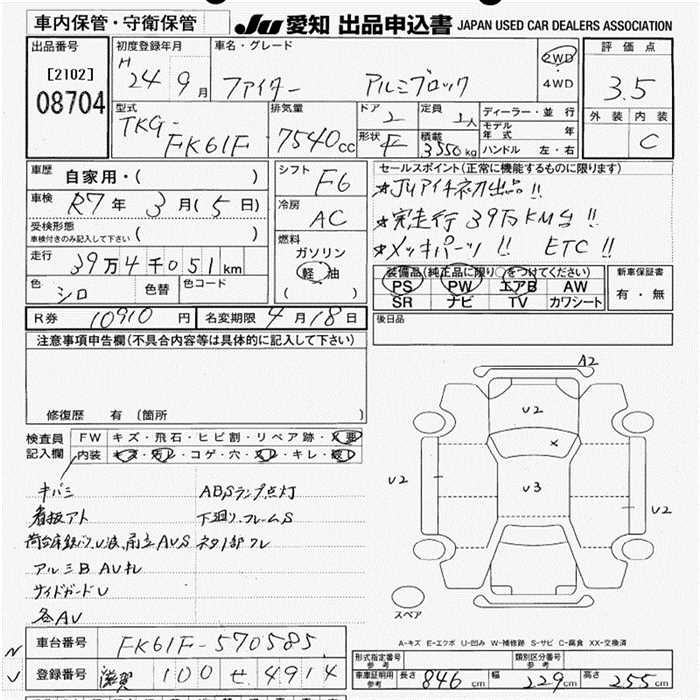 車内保管・守衛保管
JU 愛知 出品申込書 JAPAN USED CAR DEALERS ASSOCIATION
出品番号
[2102]
08704
初度登録年月
H 24 9月
車名・グレード
ファイター アルミブロック
2WD
・
4WD
評価点
3.5
外装 内装
C
型式
TKG-
FK61F
排気量
7540cc
ドア
2
定員
2人
形状
F
積載
3550kg
ディーラー・並行
モデル年式 年
ハンドル 左・右
車歴
自家用・( )
車検
R7年 3月(5日)
受検形態
車検付きのみ記入して下さい ( )
走行
39万4千051km
色
シロ
色替
色コード
シフト
F6
冷房
AC
燃料
ガソリン
軽油
( )
セールスポイント(正常に機能するものに限ります)
★JUアイチ初出品!!
★実走行39万KM台!!
★メッキパーツ!! ETC!!
装備品(純正品に限り○をつけてください)
PS PW エアB AW
SR ナビ TV カワシート
新車保証書
有・無
R券 10910円 名変期限 4月18日
後日品
注意事項申告欄(不具合内容等は具体的に記入して下さい)
修復歴 有 (箇所 )
検査員
記入欄
FW キズ・飛石・ヒビ割・リペア跡・X要
内装 キズ・汚レ・コゲ・穴・スレ・キレ・破レ
キバミ ABSランプ点灯
看板アト 下廻リ、フレームS
アルミB AV
サイドガードU
各AU
A2
U2
X
U3
U2
U2
スペア
A-キズ E-エクボ U-凹み W-補修跡 S-サビ C-腐食 XX-交換済
車台番号 FK61F-570585
登録番号 滋賀 100 せ 4914
形式指定番号
参考
類別区分番号
参考
車庫証明用
参考
長さ 846cm 幅 229cm 高さ 255cm